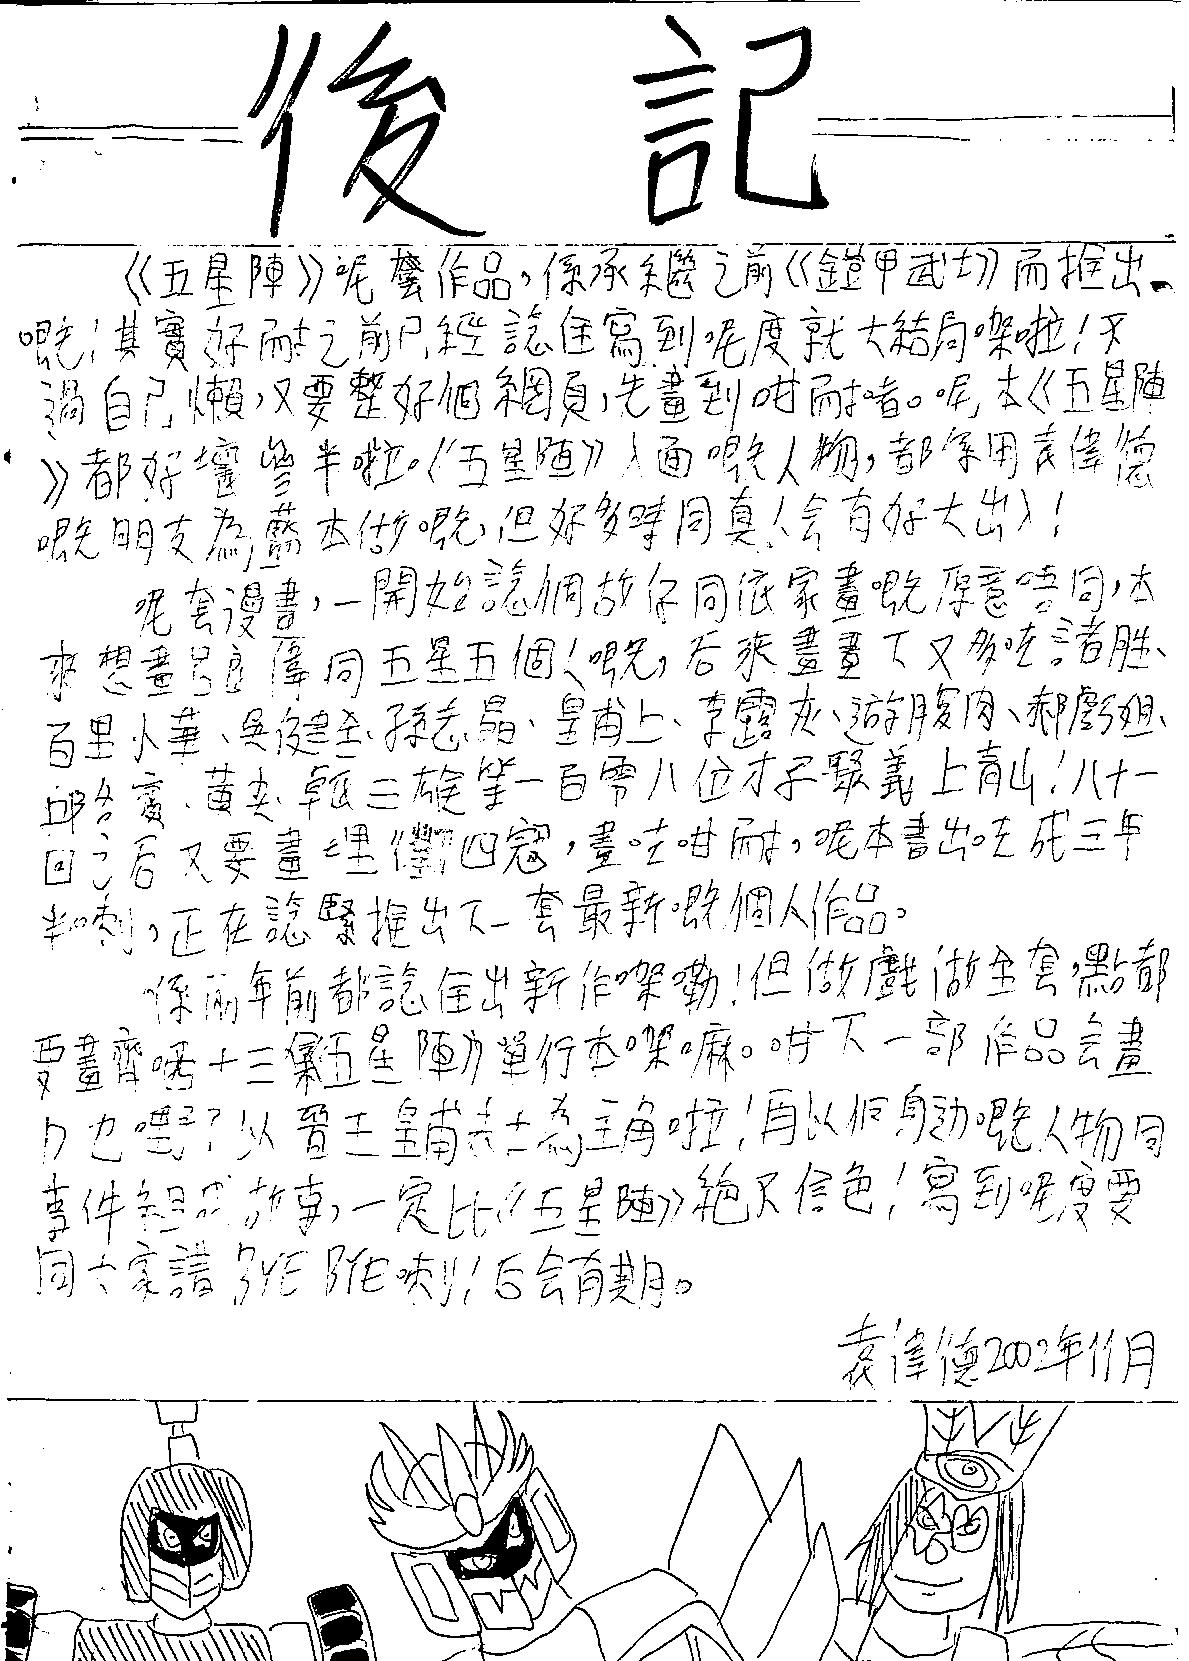 後記
《五星陣》呢套作品，係承繼之前《鎧甲武士》而推出
嘅！其實好耐之前已經諗住寫到呢度就大結局㗎啦！不
過自己懶，又要整好個網頁，先畫到咁耐啫。呢本《五星陣
》都好壞參半啦。《五星陣》入面嘅人物，都係用袁偉德
嘅朋友為藍本做嘅，但好多時同真人会有好大出入！
呢套漫畫，一開始諗個故仔同依家畫嘅原意唔同，本
來想畫呂良偉同五星五個人嘅，后來畫畫下又多咗諸勝、
百里小華、吳健全、孫志晶、皇甫上、李露灰、遊腹肉、郝虧姐、
邱 黃 、卓 三雄等一百零八位才子聚義上青山！八十一
回之后又要畫埋 四寇，畫咗咁耐，呢本書出咗成三年
半喇，正在諗緊推出下一套最新嘅個人作品。
係兩年前都諗住出新作㗎嘞！但做戲做全套，點都
要畫齊嗮十三集五星陣的單行本㗎嘛。咁下一部作品会畫
乜 嘢？以晉王皇甫 士為主角啦！再以佢身边嘅人物同
事件組成故事，一定比《五星陣》絕不信色！寫到呢度要
同大家講 BYE BYE 喇！后会有期。
袁偉德2002年11月